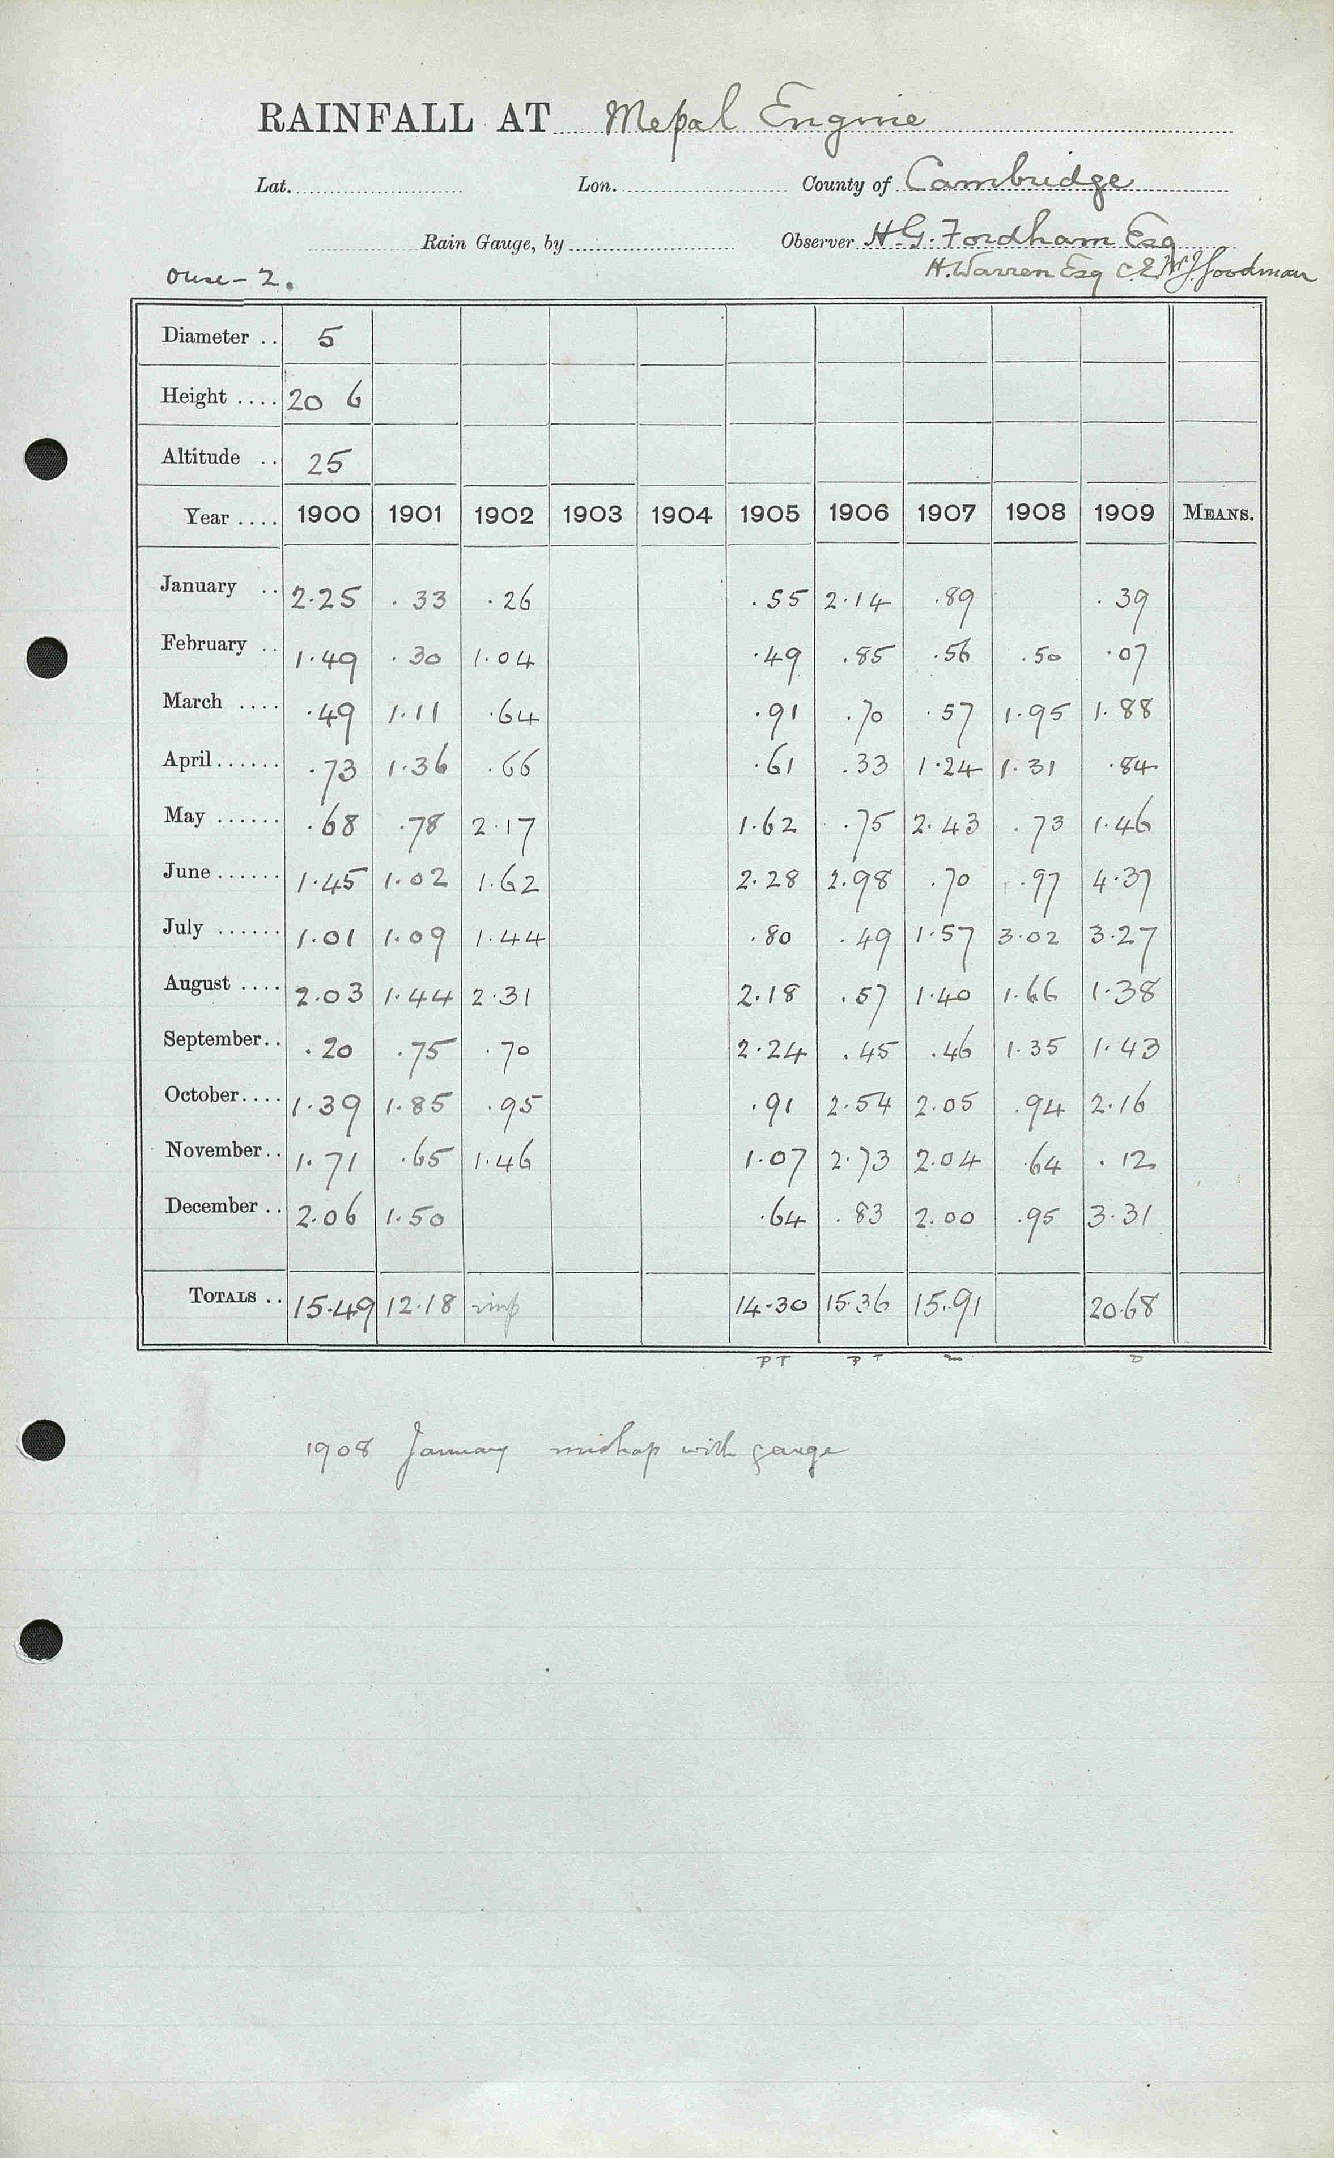 RAINFALL AT Mepal Engine
Lat. Lon. County of Cambridge
Rain Gauge, by Observer H.G. Fordham Esq
Ouse - 2. H. Warren Esq C.E. W.J. Goodman
Diameter .. 5
Height .... 20 6
Altitude .. 25
Year .... 1900 1901 1902 1903 1904 1905 1906 1907 1908 1909 MEANS.
January .. 2.25 .33 .26 .55 2.14 .89 .39
February .. 1.49 .30 1.04 .49 .85 .56 .50 .07
March .... .49 1.11 .64 .91 .70 .57 1.95 1.88
April...... .73 1.36 .66 .61 .33 1.24 1.31 .84
May ...... .68 .78 2.17 1.62 .75 2.43 .73 1.46
June ...... 1.45 1.02 1.62 2.28 2.98 .70 .97 4.37
July ...... 1.01 1.09 1.44 .80 .49 1.57 3.02 3.27
August .... 2.03 1.44 2.31 2.18 .57 1.40 1.66 1.38
September.. .20 .75 .70 2.24 .45 .46 1.35 1.43
October.... 1.39 1.85 .95 .91 2.54 2.05 .94 2.16
November.. 1.71 .65 1.46 1.07 2.73 2.04 .64 .12
December .. 2.06 1.50 .64 .83 2.00 .95 3.31
TOTALS .. 15.49 12.18 imp 14.30 15.36 15.91 20.68
PT PT m D
1908 January mishap with gauge